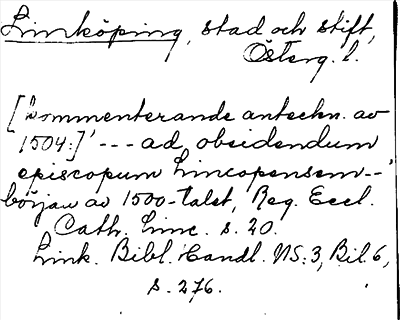 Linköping, stad och stift,
Österg. l.
['kommenterande anteckn. av
1504:]' --- ad obsidendum
episcopum Lincopensem--'
början av 1500-talet, Reg. Eccl.
Cath. Linc. s. 20.
Link. Bibl. Handl. NS:3, Bil. 6,
s. 276.